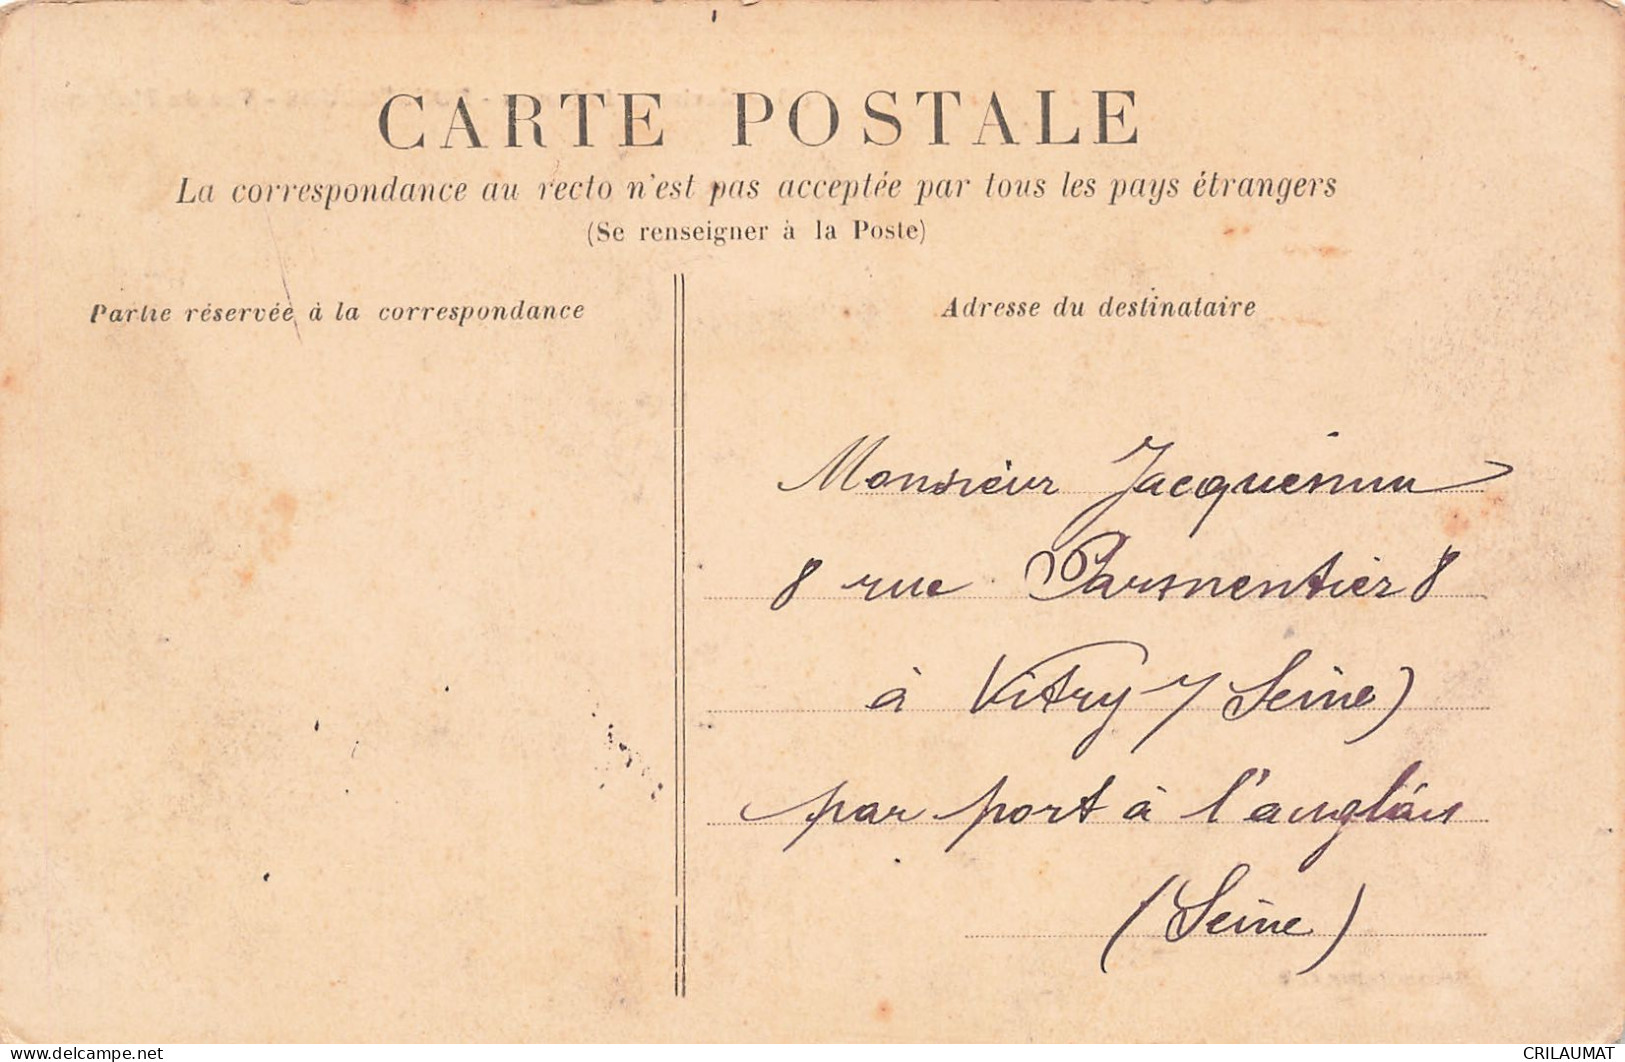 CARTE POSTALE
La correspondance au recto n'est pas acceptée par tous les pays étrangers
(Se renseigner à la Poste)
Partie réservée à la correspondance
Adresse du destinataire
Monsieur Jacquemin
8 rue Parmentier 8
à Vitry s/ Seine)
par port à l'anglais
(Seine)
www.delcampe.net
CRILAUMAT